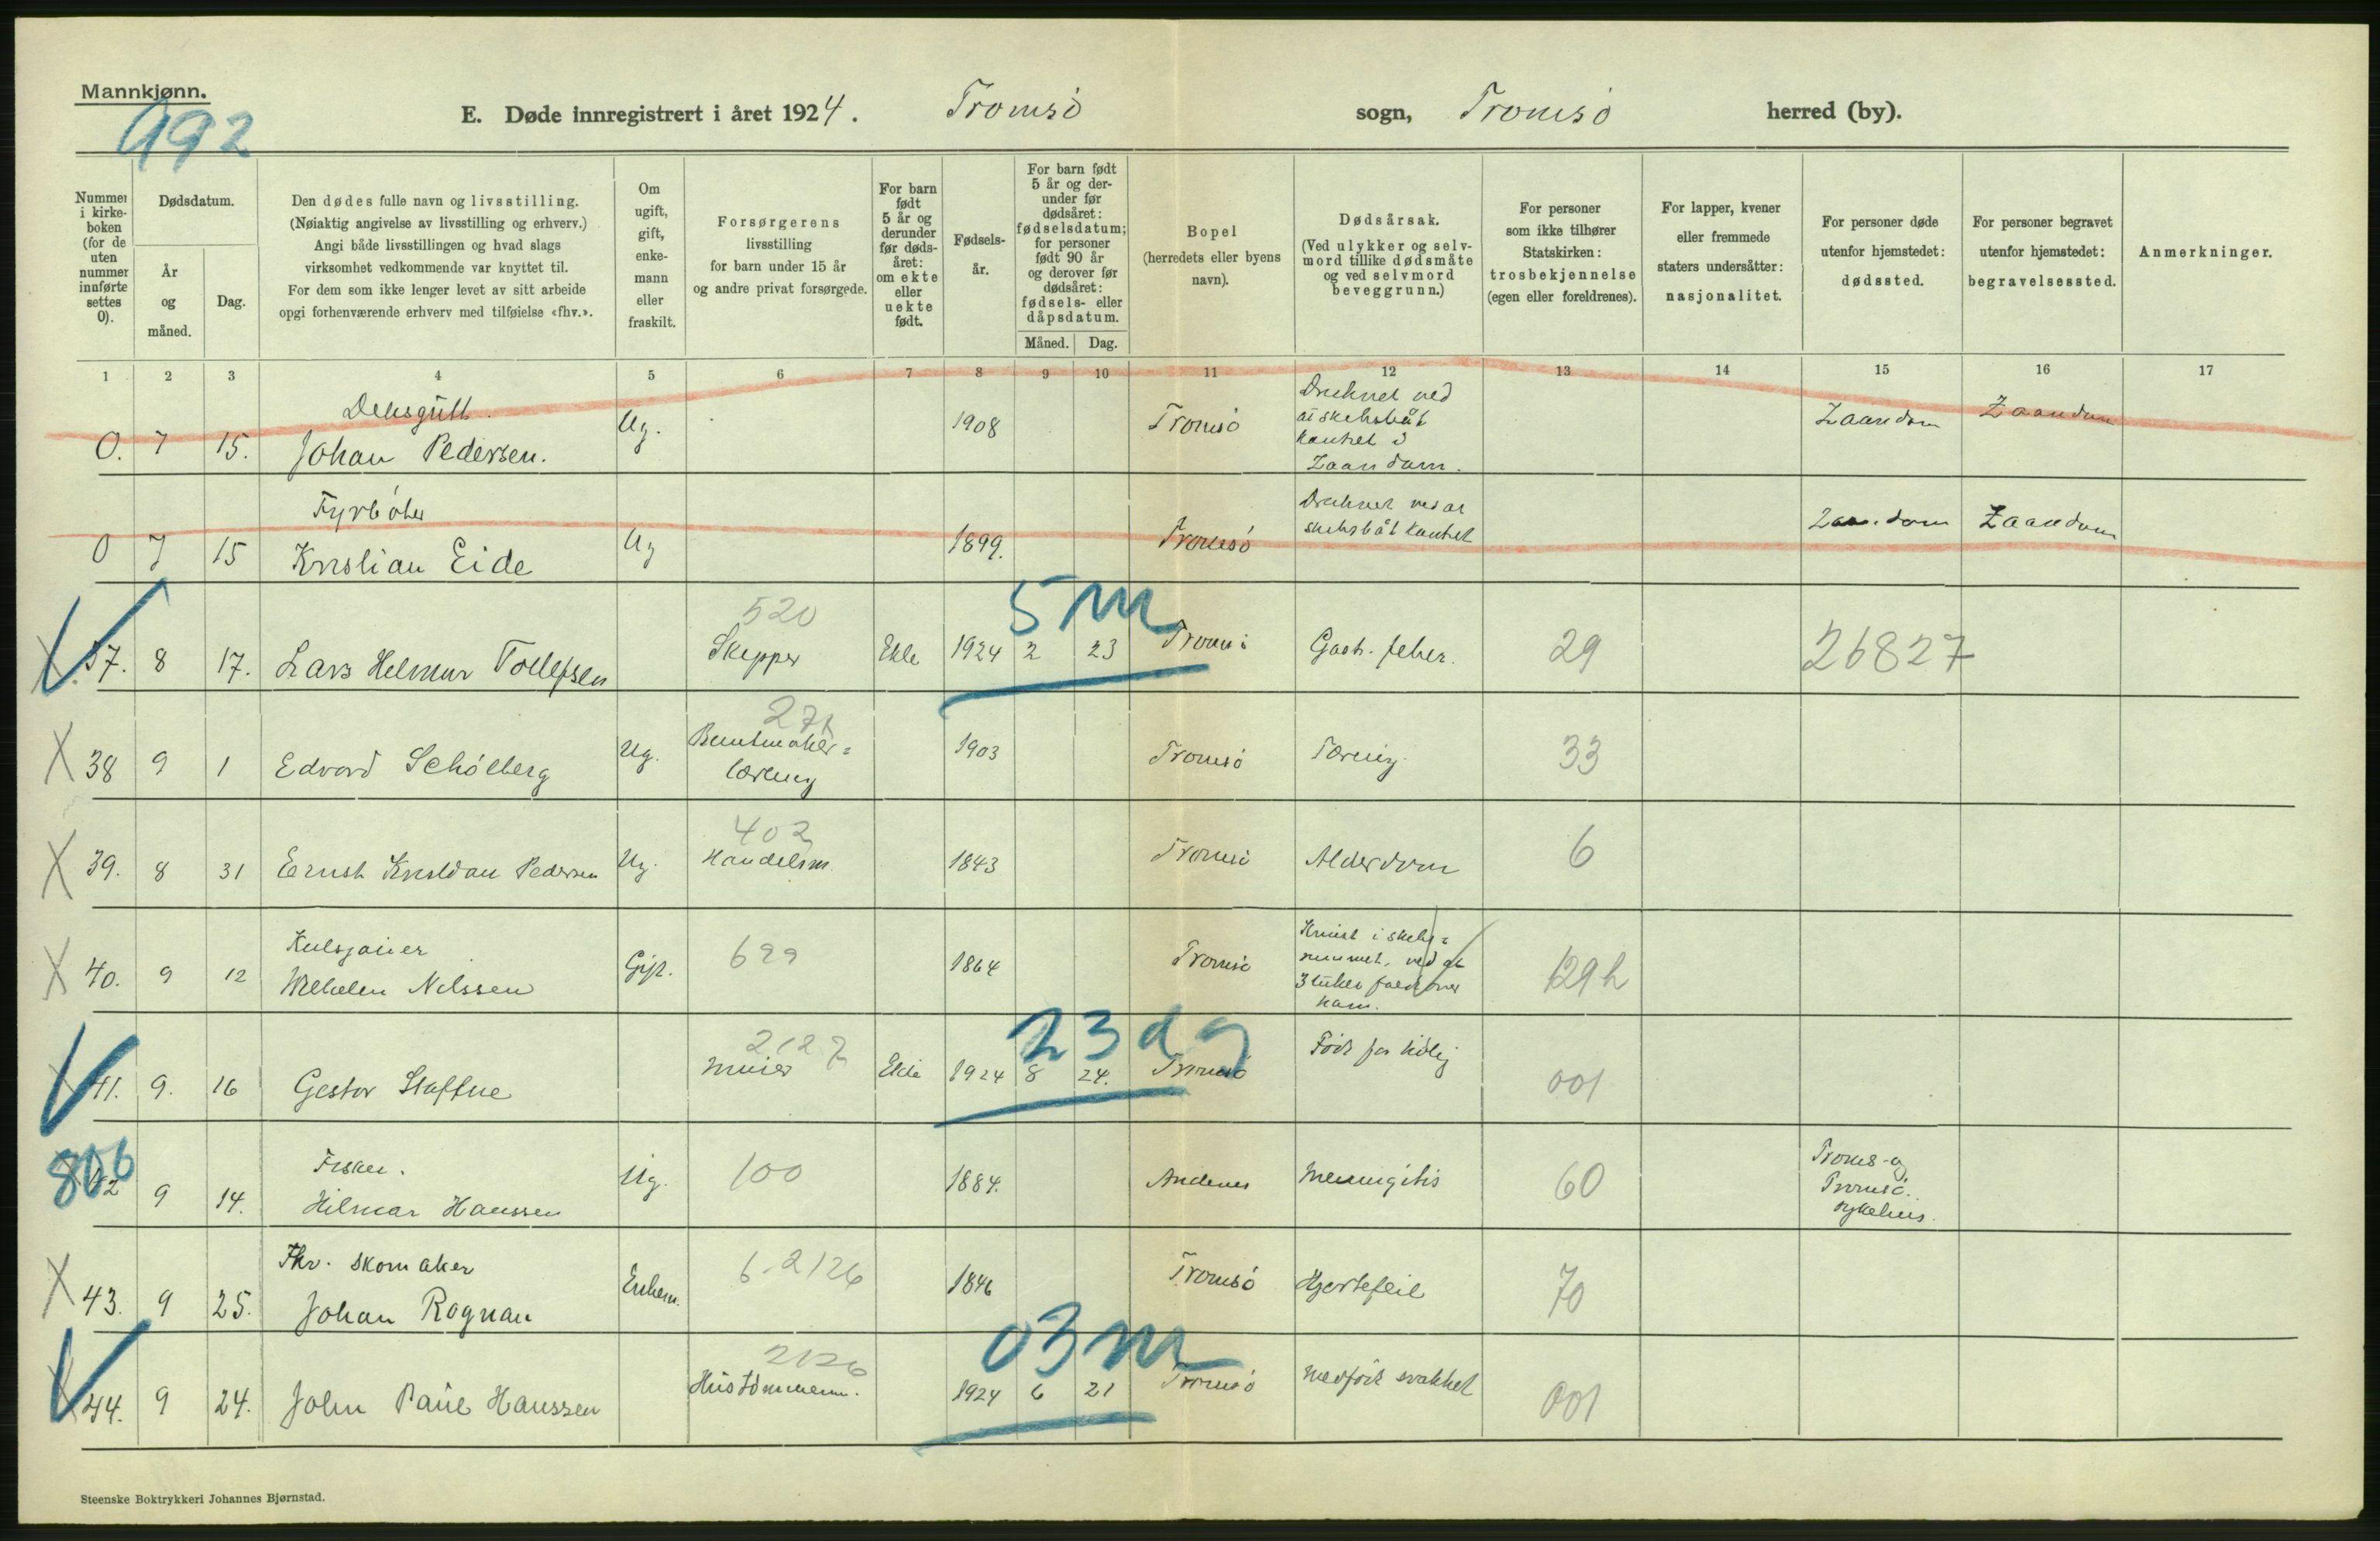 Mannkjønn.
992
E. Døde innregistrert i året 1924. Tromsö sogn, Tromsö herred (by).
Nummer i kirkeboken (for de uten nummer innførte settes 0).
Dødsdatum.
År og måned.
Dag.
Den dødes fulle navn og livsstilling.
(Nøiaktig angivelse av livsstilling og erhverv.)
Angi både livsstillingen og hvad slags
virksomhet vedkommende var knyttet til.
For dem som ikke lenger levet av sitt arbeide
opgi forhenværende erhverv med tilføielse «fhv.».
Om ugift, gift, enkemann eller fraskilt.
Forsørgerens
livsstilling
for barn under 15 år
og andre privat forsørgede.
For barn født 5 år og derunder før dødsåret: om ekte eller uekte født.
Fødselsår.
For barn født 5 år og derunder før dødsåret: fødselsdatum; for personer født 90 år og derover før dødsåret: fødsels- eller dåpsdatum.
Måned. Dag.
Bopel
(herredets eller byens navn).
Dødsårsak.
(Ved ulykker og selvmord tillike dødsmåte og ved selvmord beveggrunn.)
For personer
som ikke tilhører
Statskirken:
trosbekjennelse
(egen eller foreldrenes).
For lapper, kvener
eller fremmede
staters undersåtter:
nasjonalitet.
For personer døde
utenfor hjemstedet:
dødssted.
For personer begravet
utenfor hjemstedet:
begravelsessted.
Anmerkninger.
1 2 3 4 5 6 7 8 9 10 11 12 13 14 15 16 17
Deksgutt.
0. 7 15. Johan Pedersen. Ug. 1908 Tromsö
Druknet ved
at skibsbåt
kantret i
Zaandam.
Zaandam Zaandam
Fyrböter
0 7 15 Kristian Eide Ug 1899. Tromsö
Druknet ved at
skibsbåt kantret
Zaandam Zaandam
520
5 m
37. 8 17. Lars Helmur Tollefsen Skipper Ekte 1924 2 23 Tromsö Gastr. feber. 29 26827
271
38 9 1 Edvard Schölberg Ug. Buntmaker=
lærling
1903 Tromsö Tæring. 33
402
39. 8 31 Ernst Kristian Pedersen Ug. Handelsm. 1843 Tromsö Alderdom 6
Kulsjauer
40. 9 12 Wilhelm Nilssen Gift. 629 1864 Tromsö
Knust i skibs=
rummet, ved at
3 tukker faldt over
ham.
129 h
2127
23 dg
41. 9. 16 Gestor Staffne Murer Ekte 1924 8 24. Tromsö Född for tidlig 001
806
Fisker.
42 9 14. Hilmar Hanssen Ug. 100 1884. Andenes Meningitis 60
Troms og
Tromsö
sykehus.
Fhv. skomaker
43. 9 25. Johan Rognan Enkem. 6-2126 1846 Tromsö Hjertefeil 70
2126
03 m
44. 9 24. John Paul Hanssen Hustömmerm. 1924 6 21 Tromsö Medfödt svakhet 001
Steenske Boktrykkeri Johannes Bjørnstad.